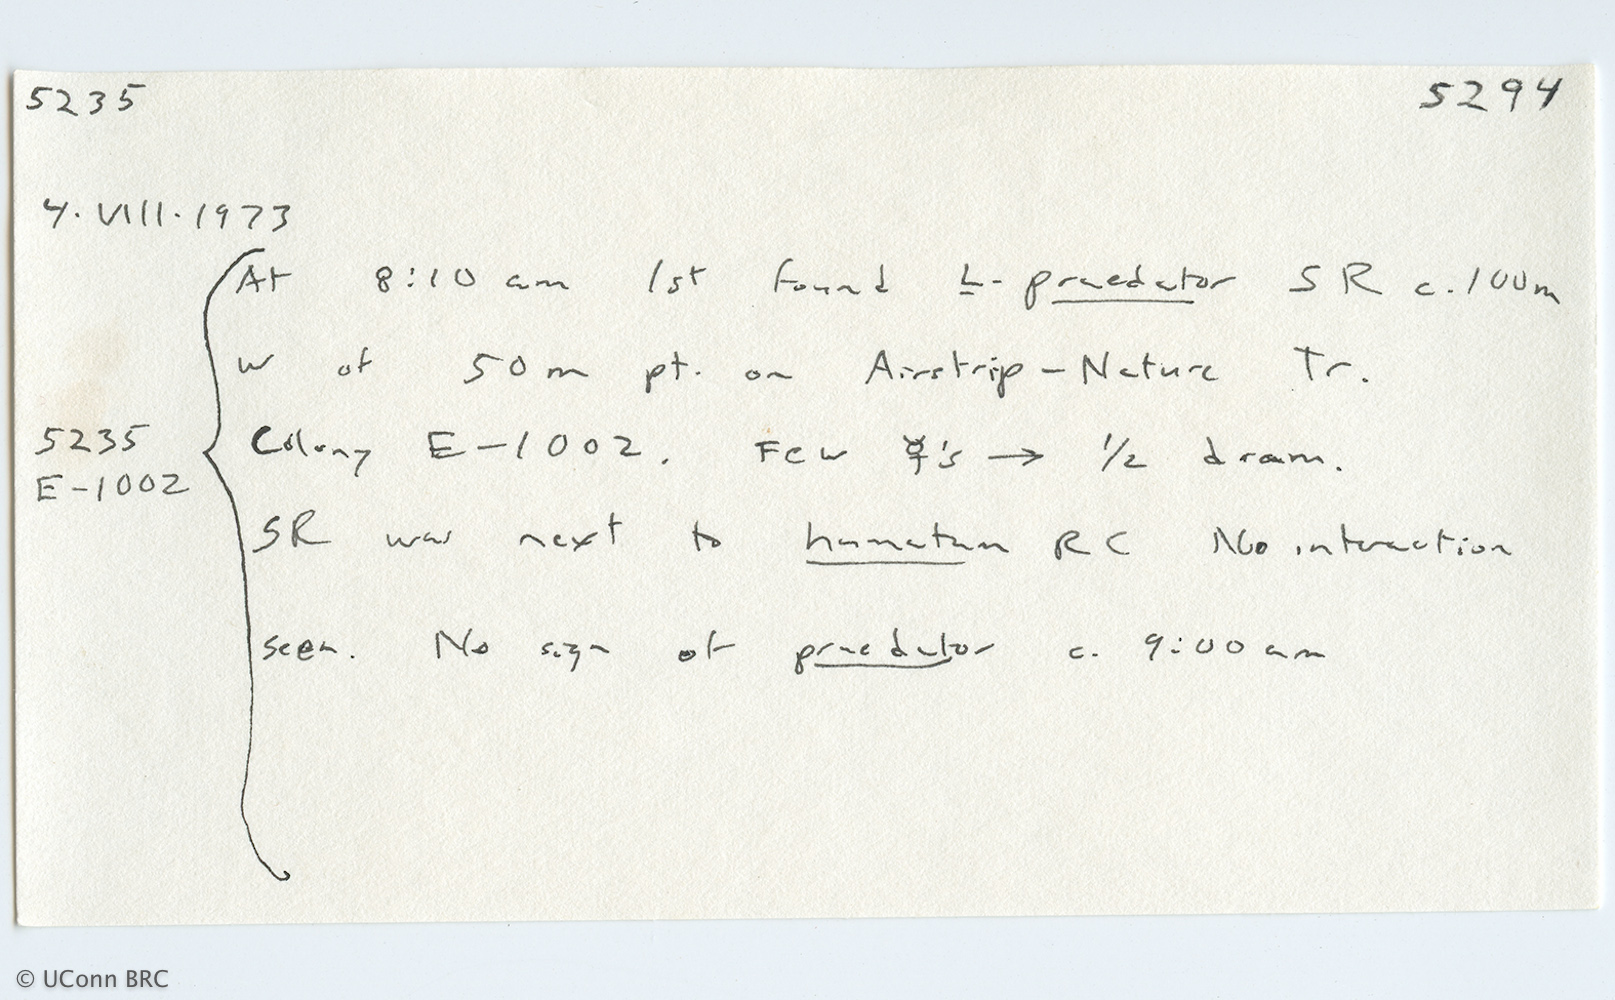 5235 5294
4.VIII.1973
At 8:10 am 1st found L. praedator SR c. 100m
W of 50m pt. on Airstrip-Nature Tr.
5235
E-1002
Colony E-1002. Few ☿'s → 1/2 dram.
SR was next to hamatum RC No interaction
seen. No sign of praedator c. 9:00 am
© UConn BRC